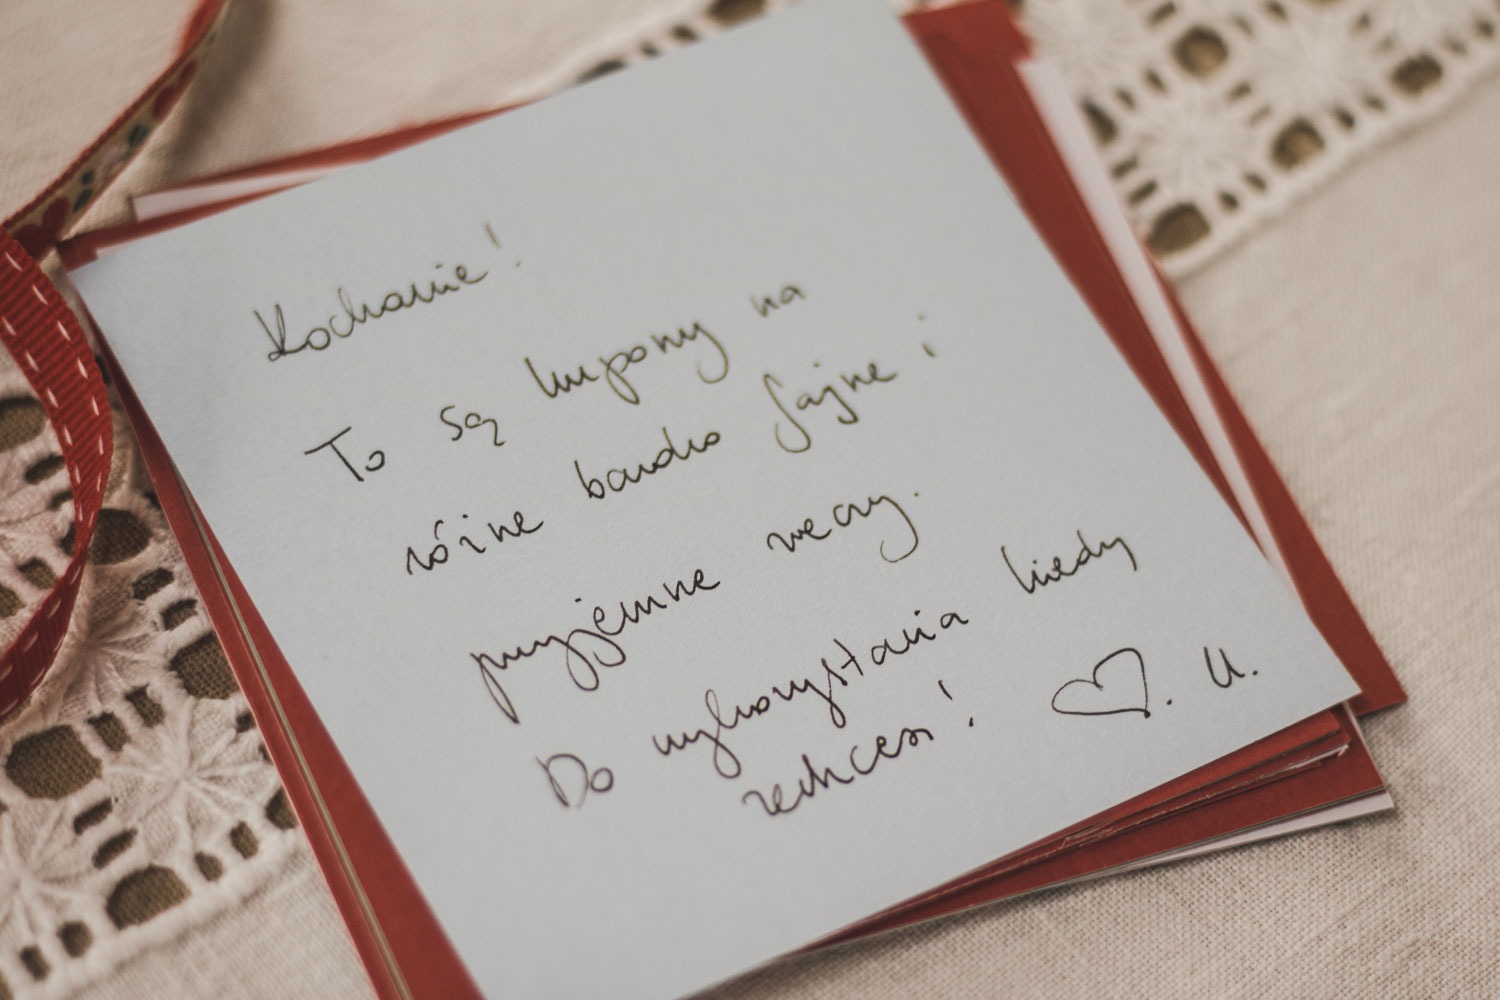 Kochanie!
To są kupony na
różne bardzo fajne i
przyjemne rzeczy.
Do wykorzystania kiedy
zechcesz! ♡. U.